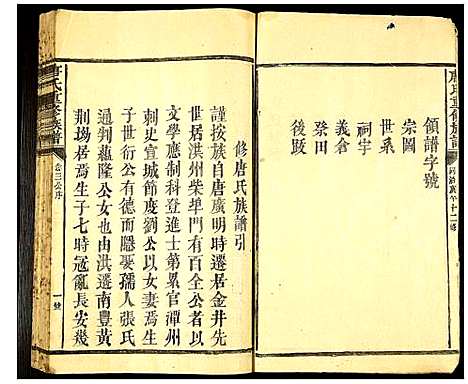 唐氏重修族譜
領譜字號
宗圖
世系
祠宇
義倉
祭田
後跋
修唐氏族譜引
謹按族自唐廣明時遷居金井先
世居洪州柴埠門有全公者以
文學應制科登進士第累官潭州
刺史宣城節度劉公以女妻焉生
子世衍公有德而隱娶孺人張氏
通判蘊隆公女也由洪遷南豐黃
荆場居焉生子七時冦亂長安幾
唐氏重修族譜
卷三公序
一號